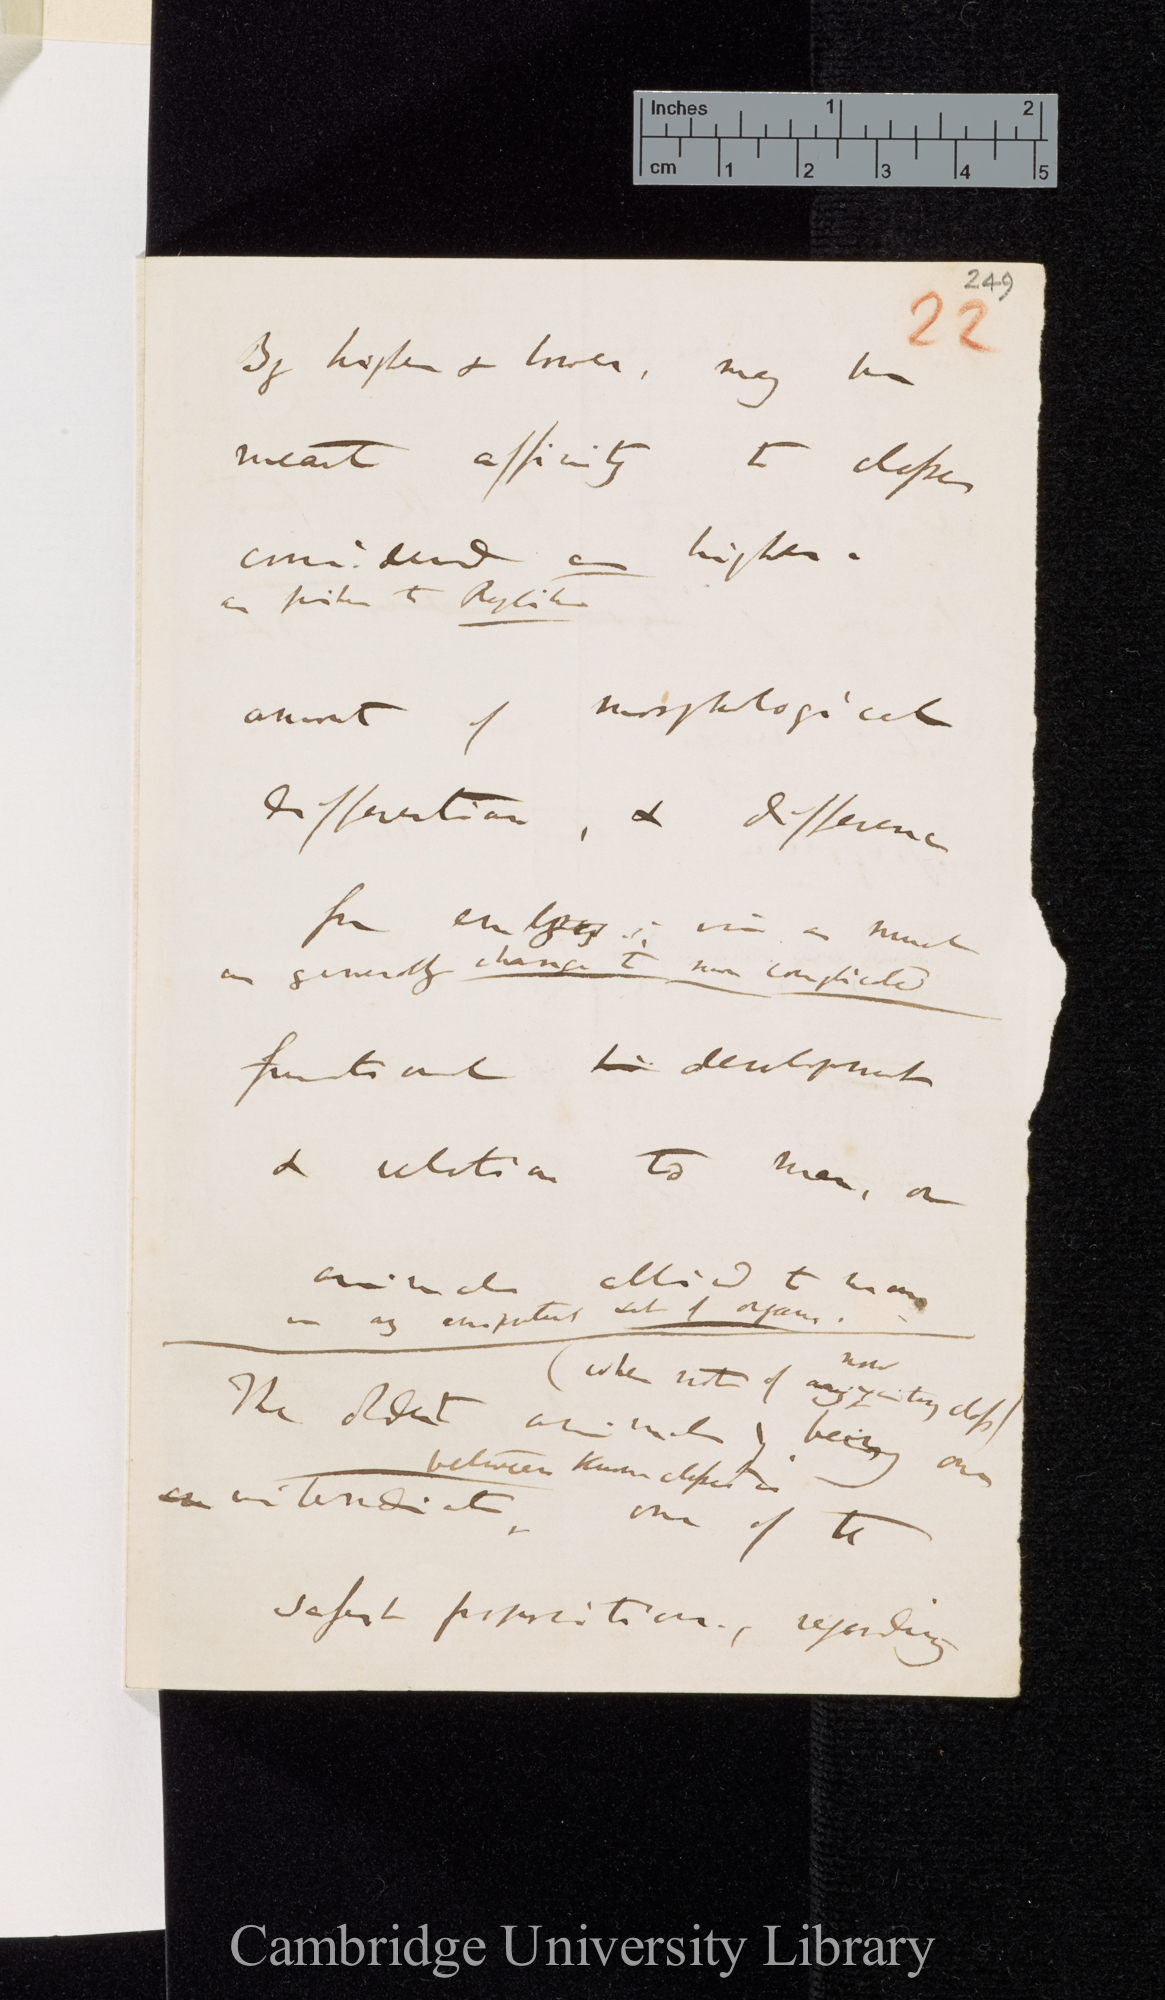 Inches 1 2
cm 1 2 3 4 5
249
22
By higher & lower, may be
meant affinity to classes
considered as higher –
as fishes to Reptiles
amount of morphological
differention, & difference
from embryo; in as much
as generally change to more complicated
functional development
& relation to man, or
animals allied to man
in any important set of organs.
(when not of now existing class)
The oldest animals being
between known classes is
an intermediate, one of the
safest propositions, regarding
Cambridge University Library